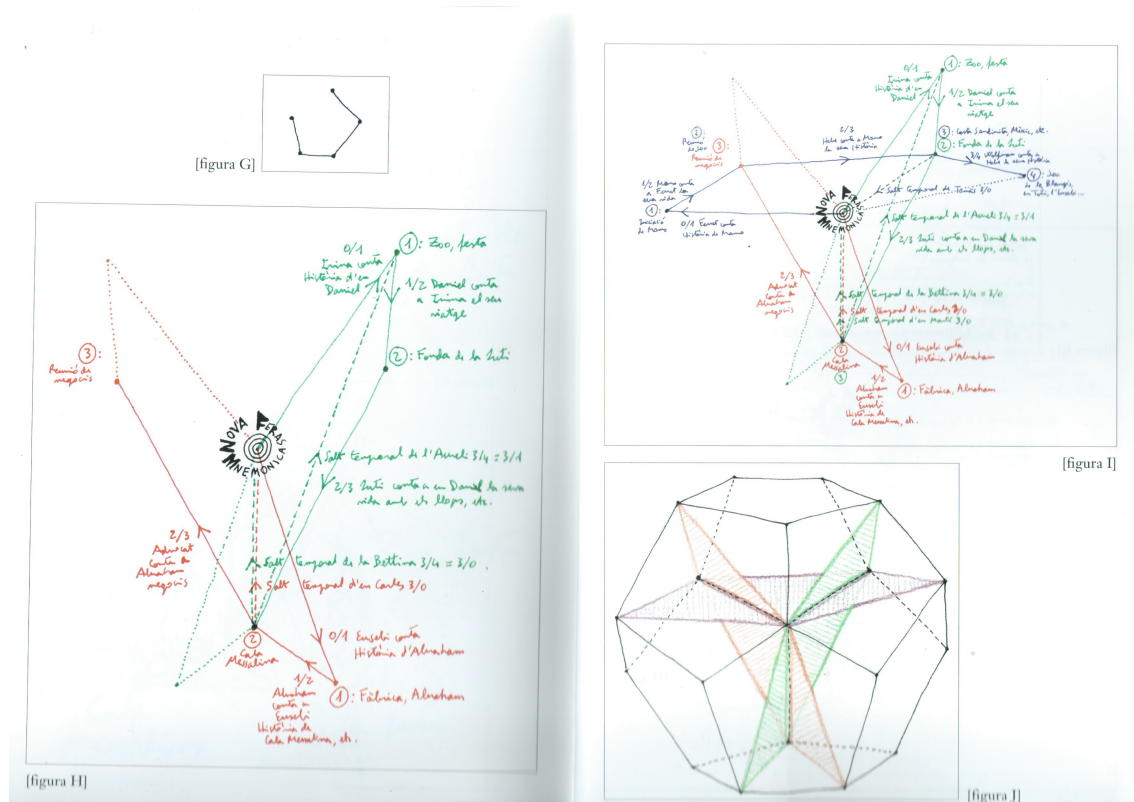 [figura G]
0/1
Irina conta
Història d'en
Daniel
1: Zoo, festa
1/2 Daniel conta
a Irina el seu
viatge
2: Fonda de la Iuti
3:
Reunió de
negocis
NOVA FERAS
MNEMONICAS
Salt temporal de l'Aureli 3/4 = 3/1
2/3 Iuti conta a en Daniel la seva
vida amb els llops, etc.
2/3
Advocat
conta a
Abraham
negocis
Salt temporal de la Bettina 3/4 = 3/0
Salt temporal d'en Carles 3/0
2
Cala
Messalina
0/1 Eusebi conta
Història d'Abraham
1/2
Abraham
conta a
Eusebi
Història de
Cala Messalina, etc.
1: Fàbrica, Abraham
[figura H]
0/1
Irina conta
Història d'en
Daniel
1: Zoo, festa
1/2 Daniel conta
a Irina el seu
viatge
2:
Reunió
3:
Reunió de
negocis
2/3
la seva història
3: Costa Sandinista, Mèxic, etc.
2: Fonda de la Iuti
3/4 conta a
la seva història
4:
de la
1/2 conta
a
seva vida
1:
Iniciació
de
0/1 conta
Història de
NOVA FERAS
MNEMONICAS
Salt temporal de Tomàs 3/0
Salt temporal de l'Aureli 3/4 = 3/1
2/3 Iuti conta a en Daniel la seva
vida amb els llops, etc.
2/3
Advocat
conta a
Abraham
negocis
Salt temporal de la Bettina 3/4 = 3/0
Salt temporal d'en Carles 3/0
Salt temporal d'en Martí 3/0
2
Cala
Messalina
3
0/1 Eusebi conta
Història d'Abraham
1/2
Abraham
conta a
Eusebi
Història de
Cala Messalina, etc.
1: Fàbrica, Abraham
[figura I]
[figura J]